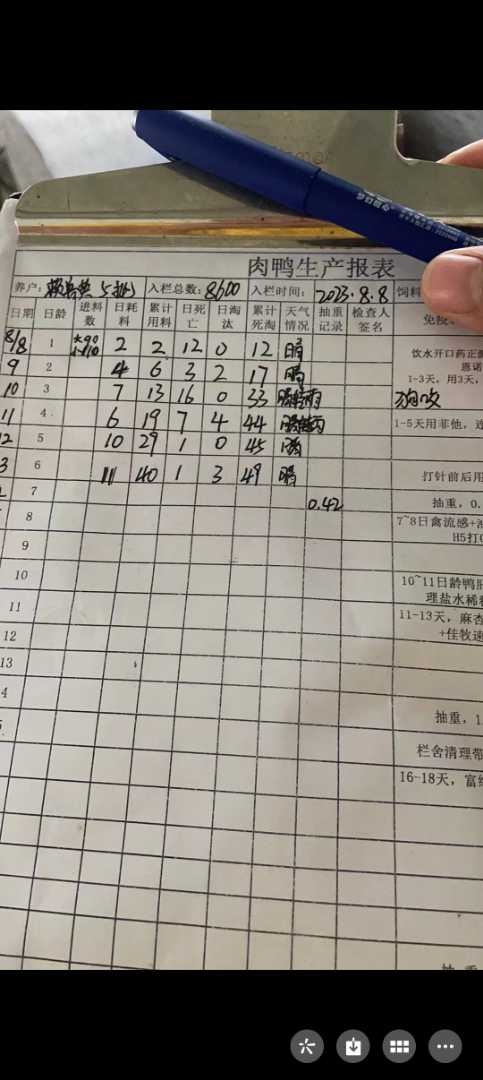 肉鸭生产报表
养户: 5批 入栏总数: 8600 入栏时间: 2023.8.8 饲料
日期 日龄 进料数 日耗料 累计用料 日死亡 日淘汰 累计死淘 天气情况 抽重记录 检查人签名 免疫
8/8 1 2 2 12 0 12 晴 饮水开口药正
恩诺
9 2 4 6 3 2 17 晴 1-3天，用3天，
10 3 7 13 16 0 33
11 4 6 19 7 4 44 1-5天用非他，连
12 5 10 29 1 0 45 晴
3 6 11 40 1 3 49 晴 打针前后用
7 0.42 抽重，0.
8 7~8日禽流感+
H5打
9
10 10~11日龄鸭肝
理盐水稀释
11 11-13天，麻杏
12 +佳牧速
13
4 抽重，1.
5 栏舍清理带
16-18天，富
抽 重